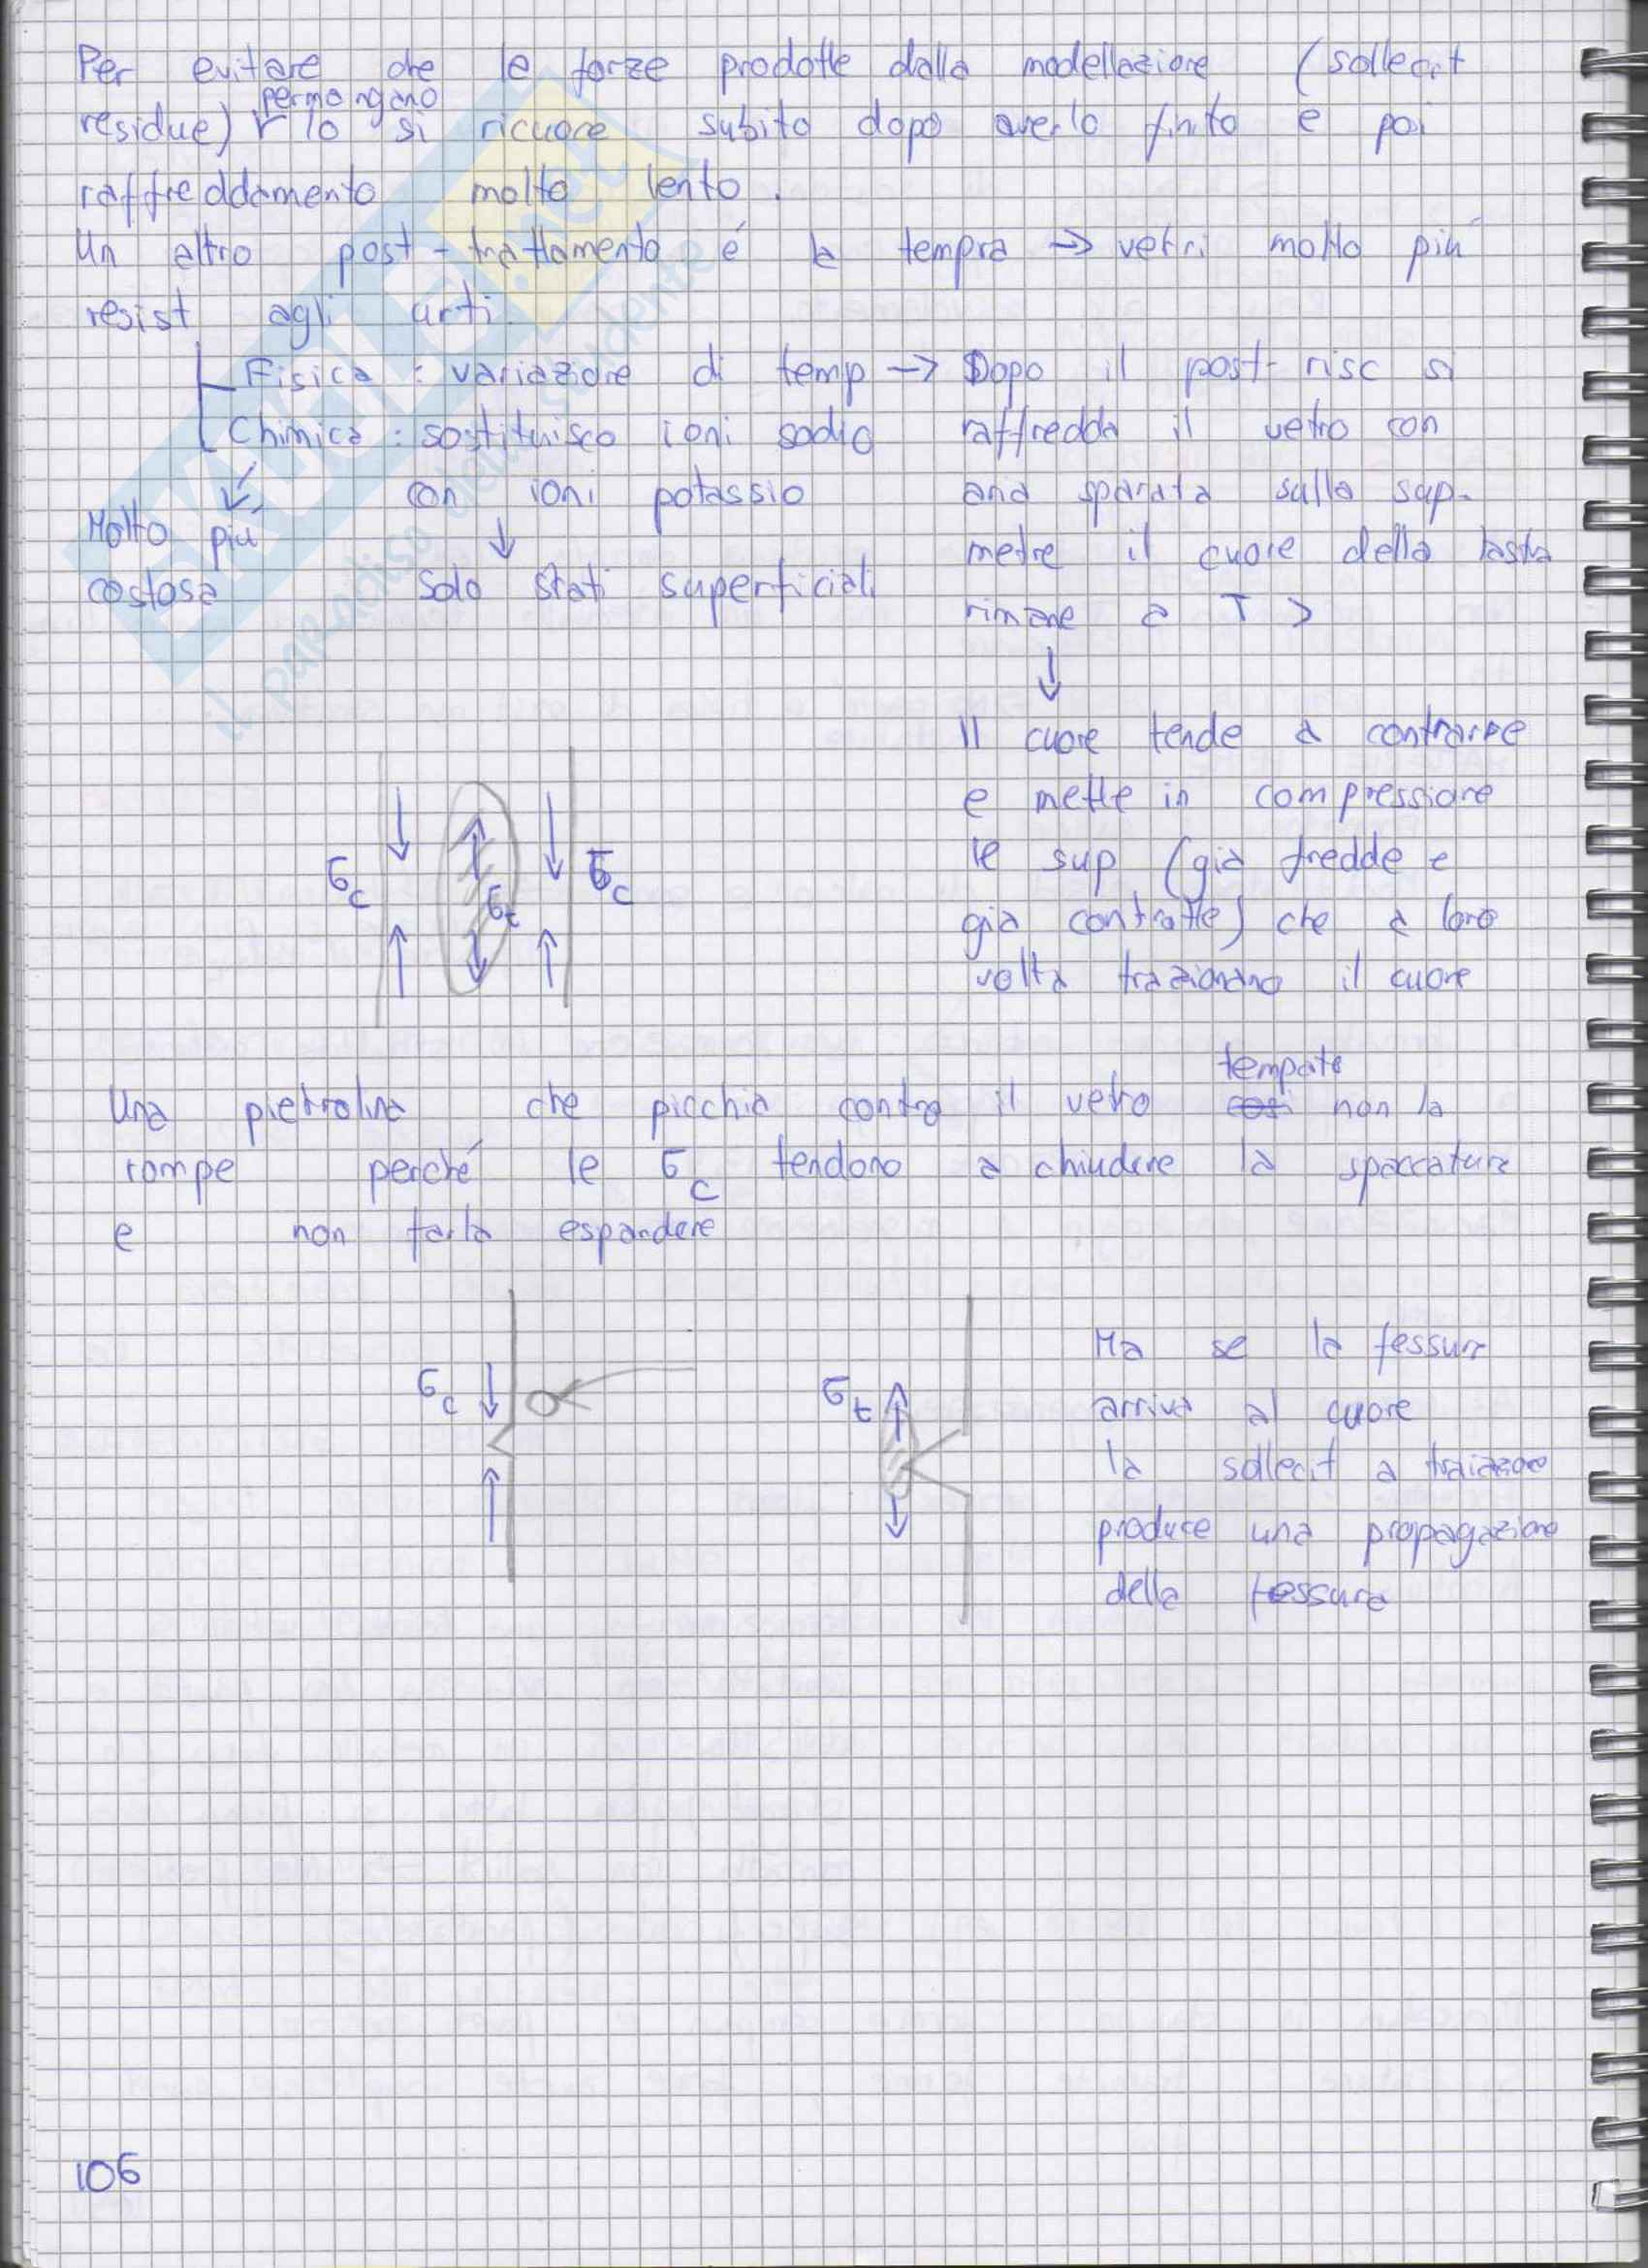 Per evitare che le forze prodotte dalla modellazione (sollecit
permangano
residue) lo si ricuoce subito dopo averlo finito e poi
raffreddamento molto lento.
Un altro post-trattamento é la tempra → vetri molto più
resist agli urti.
Fisica : variazione di temp → Dopo il post-risc si
Chimica : sostituisco ioni sodio
con ioni potassio
↓
solo strati superficiali
Molto più
costosa
raffredda il vetro con
aria sparata sulla sup.
mentre il cuore della lastra
rimane a T >
↓
Il cuore tende a contrarre
e mette in compressione
le sup (già fredde e
già contratte) che a loro
volta trazionano il cuore
σc σt σc
temprato
Una pietrolina che picchia contro il vetro così non la
rompe perché le σc tendono a chiudere la spaccatura
e non farla espandere
σc
σt
Ma se la fessura
arriva al cuore
la sollecit a traizione
produce una propagazione
della fessura
106
SKUOLA.net
il paradiso dello studente